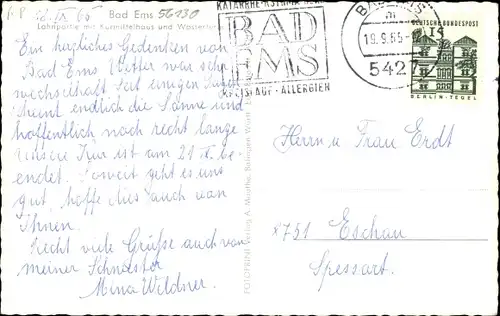 18.IX 65
Bad Ems 56130
Lahnpartie mit Kurmittelhaus und
Ein herzliches Gedenken von
Bad Ems. Wetter war sehr
wechselhaft seit einigen
scheint endlich die Sonne und
hoffentlich noch recht lange
unsere Kur ist am 21 X. be-
endet. Soweit geht es uns
gut, hoffe dies auch von
Ihnen.
Recht viele Grüße auch von
meiner Schwester
Mina Wildner.
BAD
EMS
KREISLAUF · ALLERGIEN
BAD EMS
19.9.65-
5427
DEUTSCHE BUNDESPOST
BERLIN-TEGEL
Herrn u Frau Erdt
8751 Eschau
Spessart.